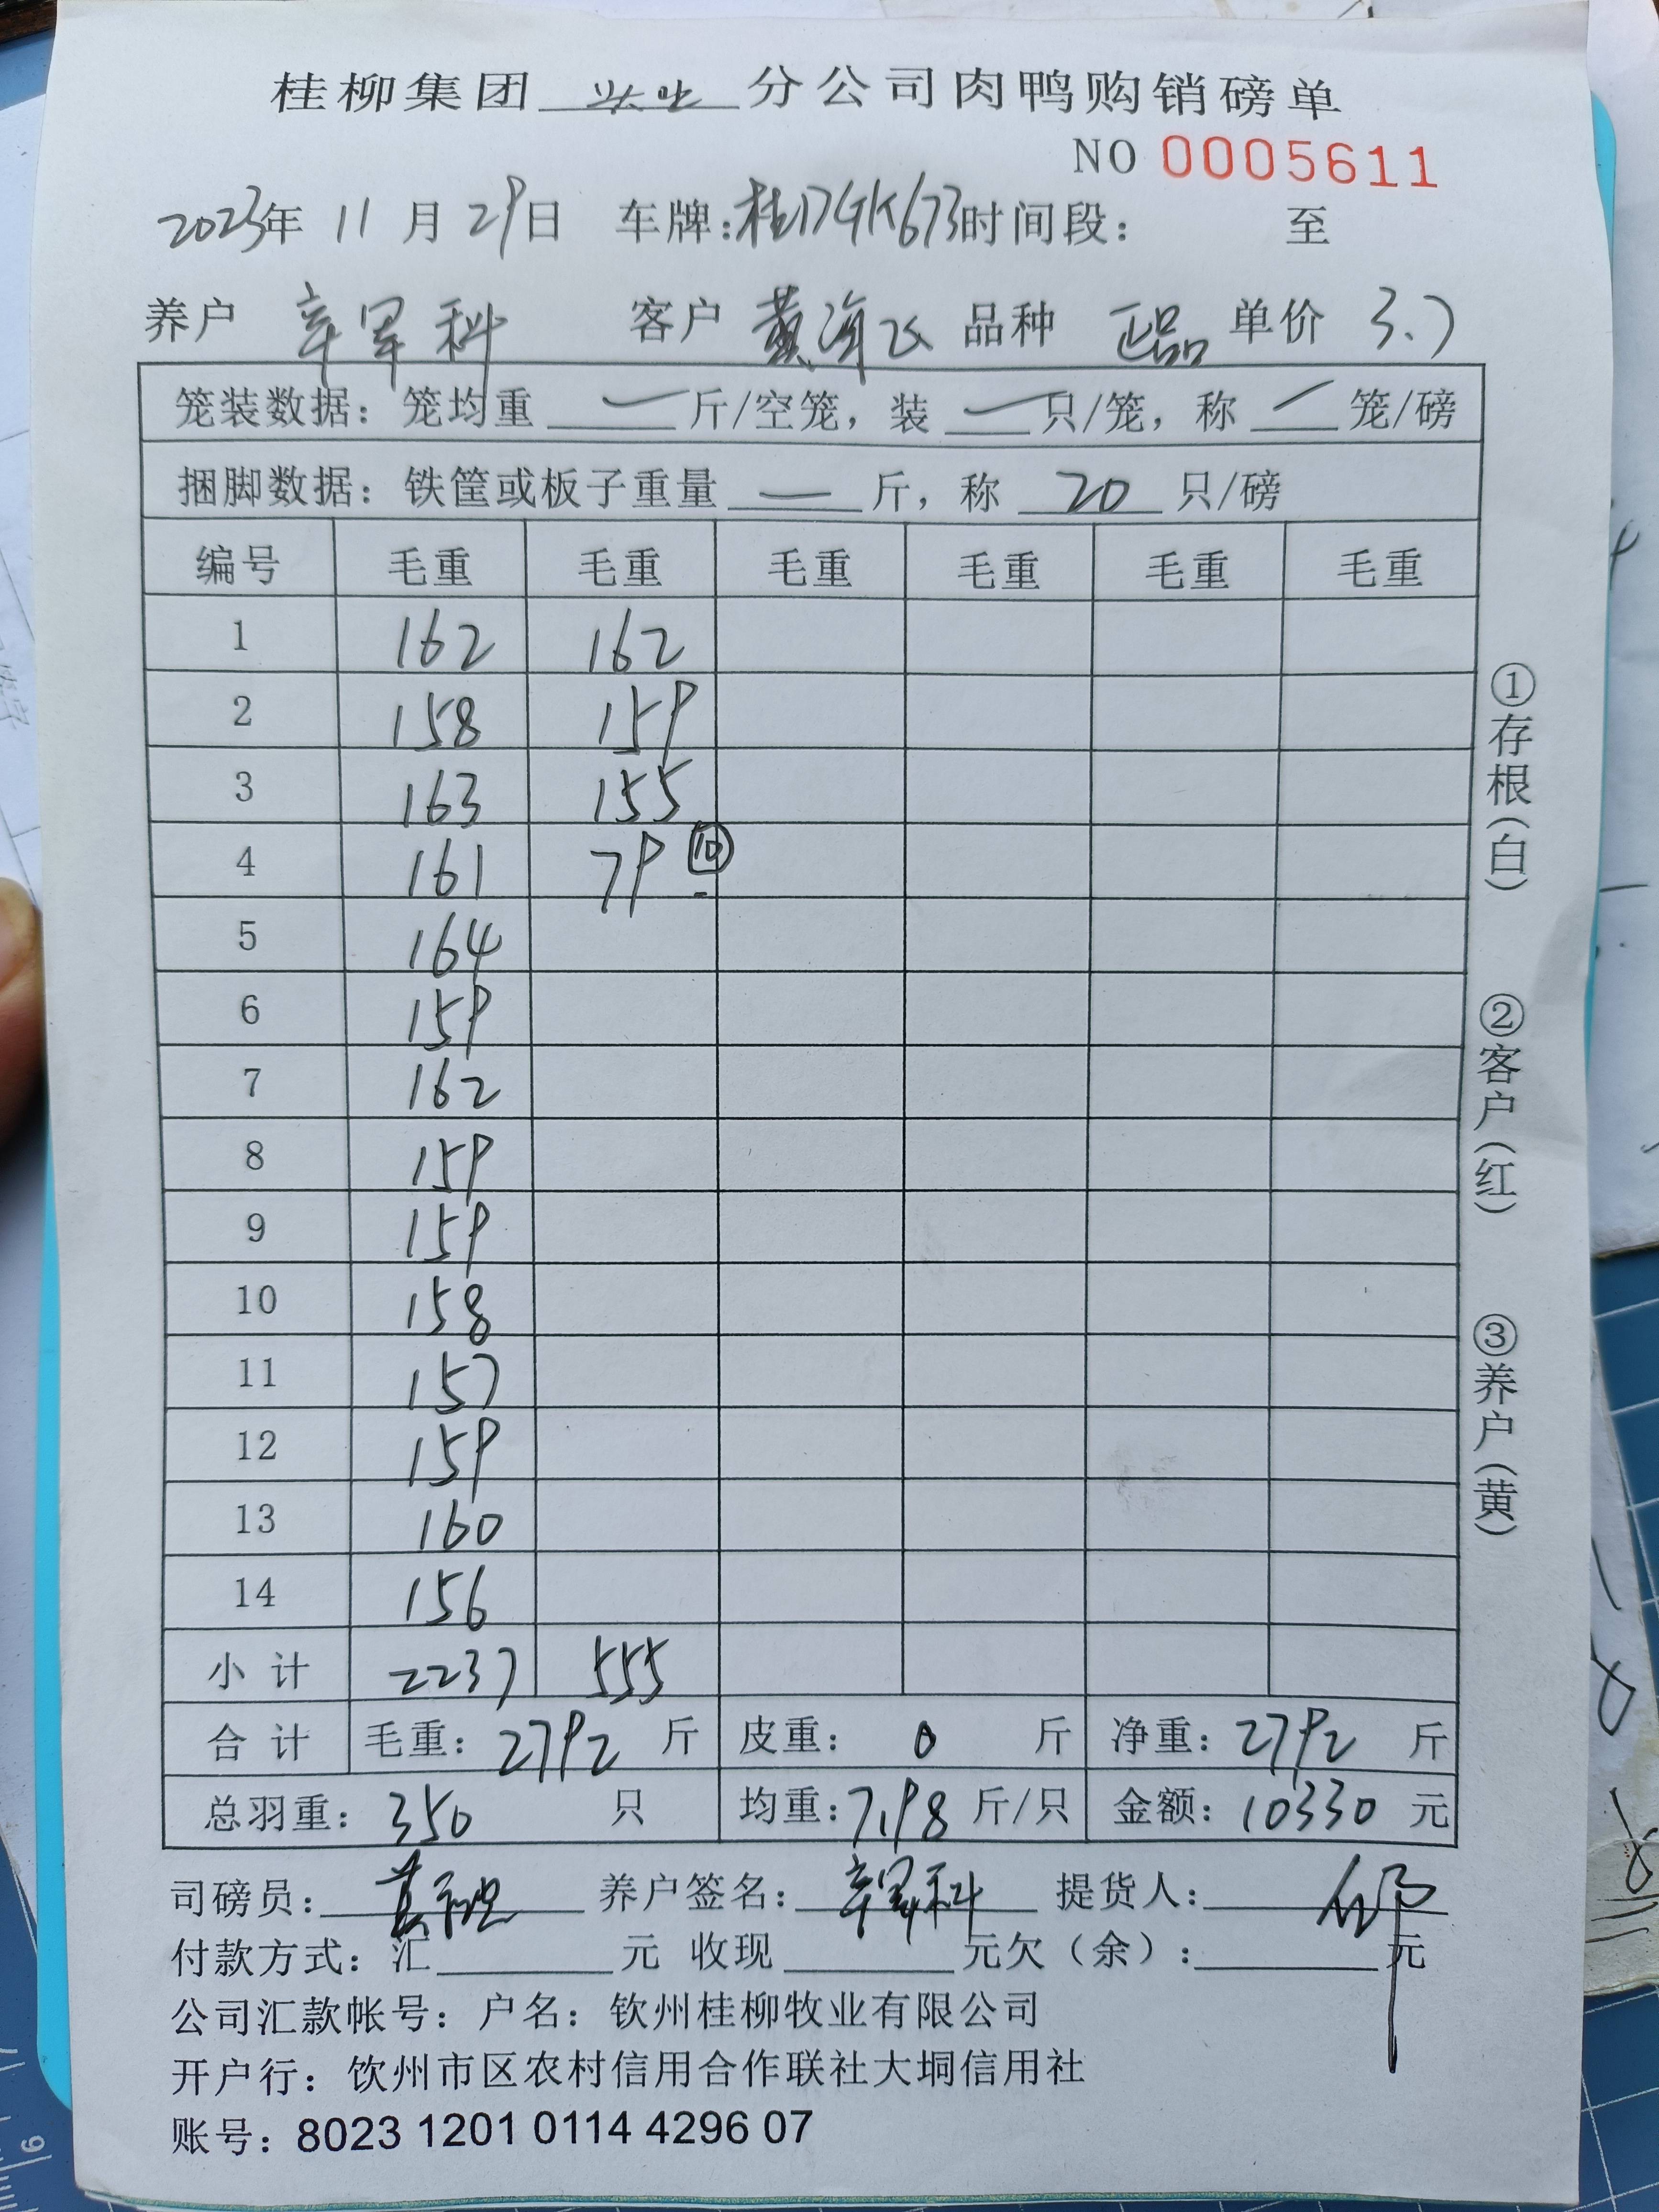 桂柳集团 分公司肉鸭购销磅单
NO 0005611
2023年 11 月 29日 车牌: 时间段: 至
养户 客户 黄海飞 品种 正品 单价 3.7
笼装数据: 笼均重 — 斤/空笼, 装 — 只/笼, 称 — 笼/磅
捆脚数据: 铁筐或板子重量 — 斤, 称 20 只/磅
编号 毛重 毛重 毛重 毛重 毛重 毛重
1 162 162
2 158 159
3 163 155
4 161 79 ⑩
5 164
6 159
7 162
8 159
9 159
10 158
11 157
12 159
13 160
14 156
小计 2237 555
合计 毛重: 2792 斤 皮重: 0 斤 净重: 2792 斤
总羽重: 350 只 均重: 7.98 斤/只 金额: 10330 元
司磅员: 养户签名: 提货人:
付款方式: 汇 元 收现 元欠(余): 元
公司汇款帐号: 户名: 钦州桂柳牧业有限公司
开户行: 钦州市区农村信用合作联社大垌信用社
账号: 8023 1201 0114 4296 07
①存根(白)
②客户(红)
③养户(黄)